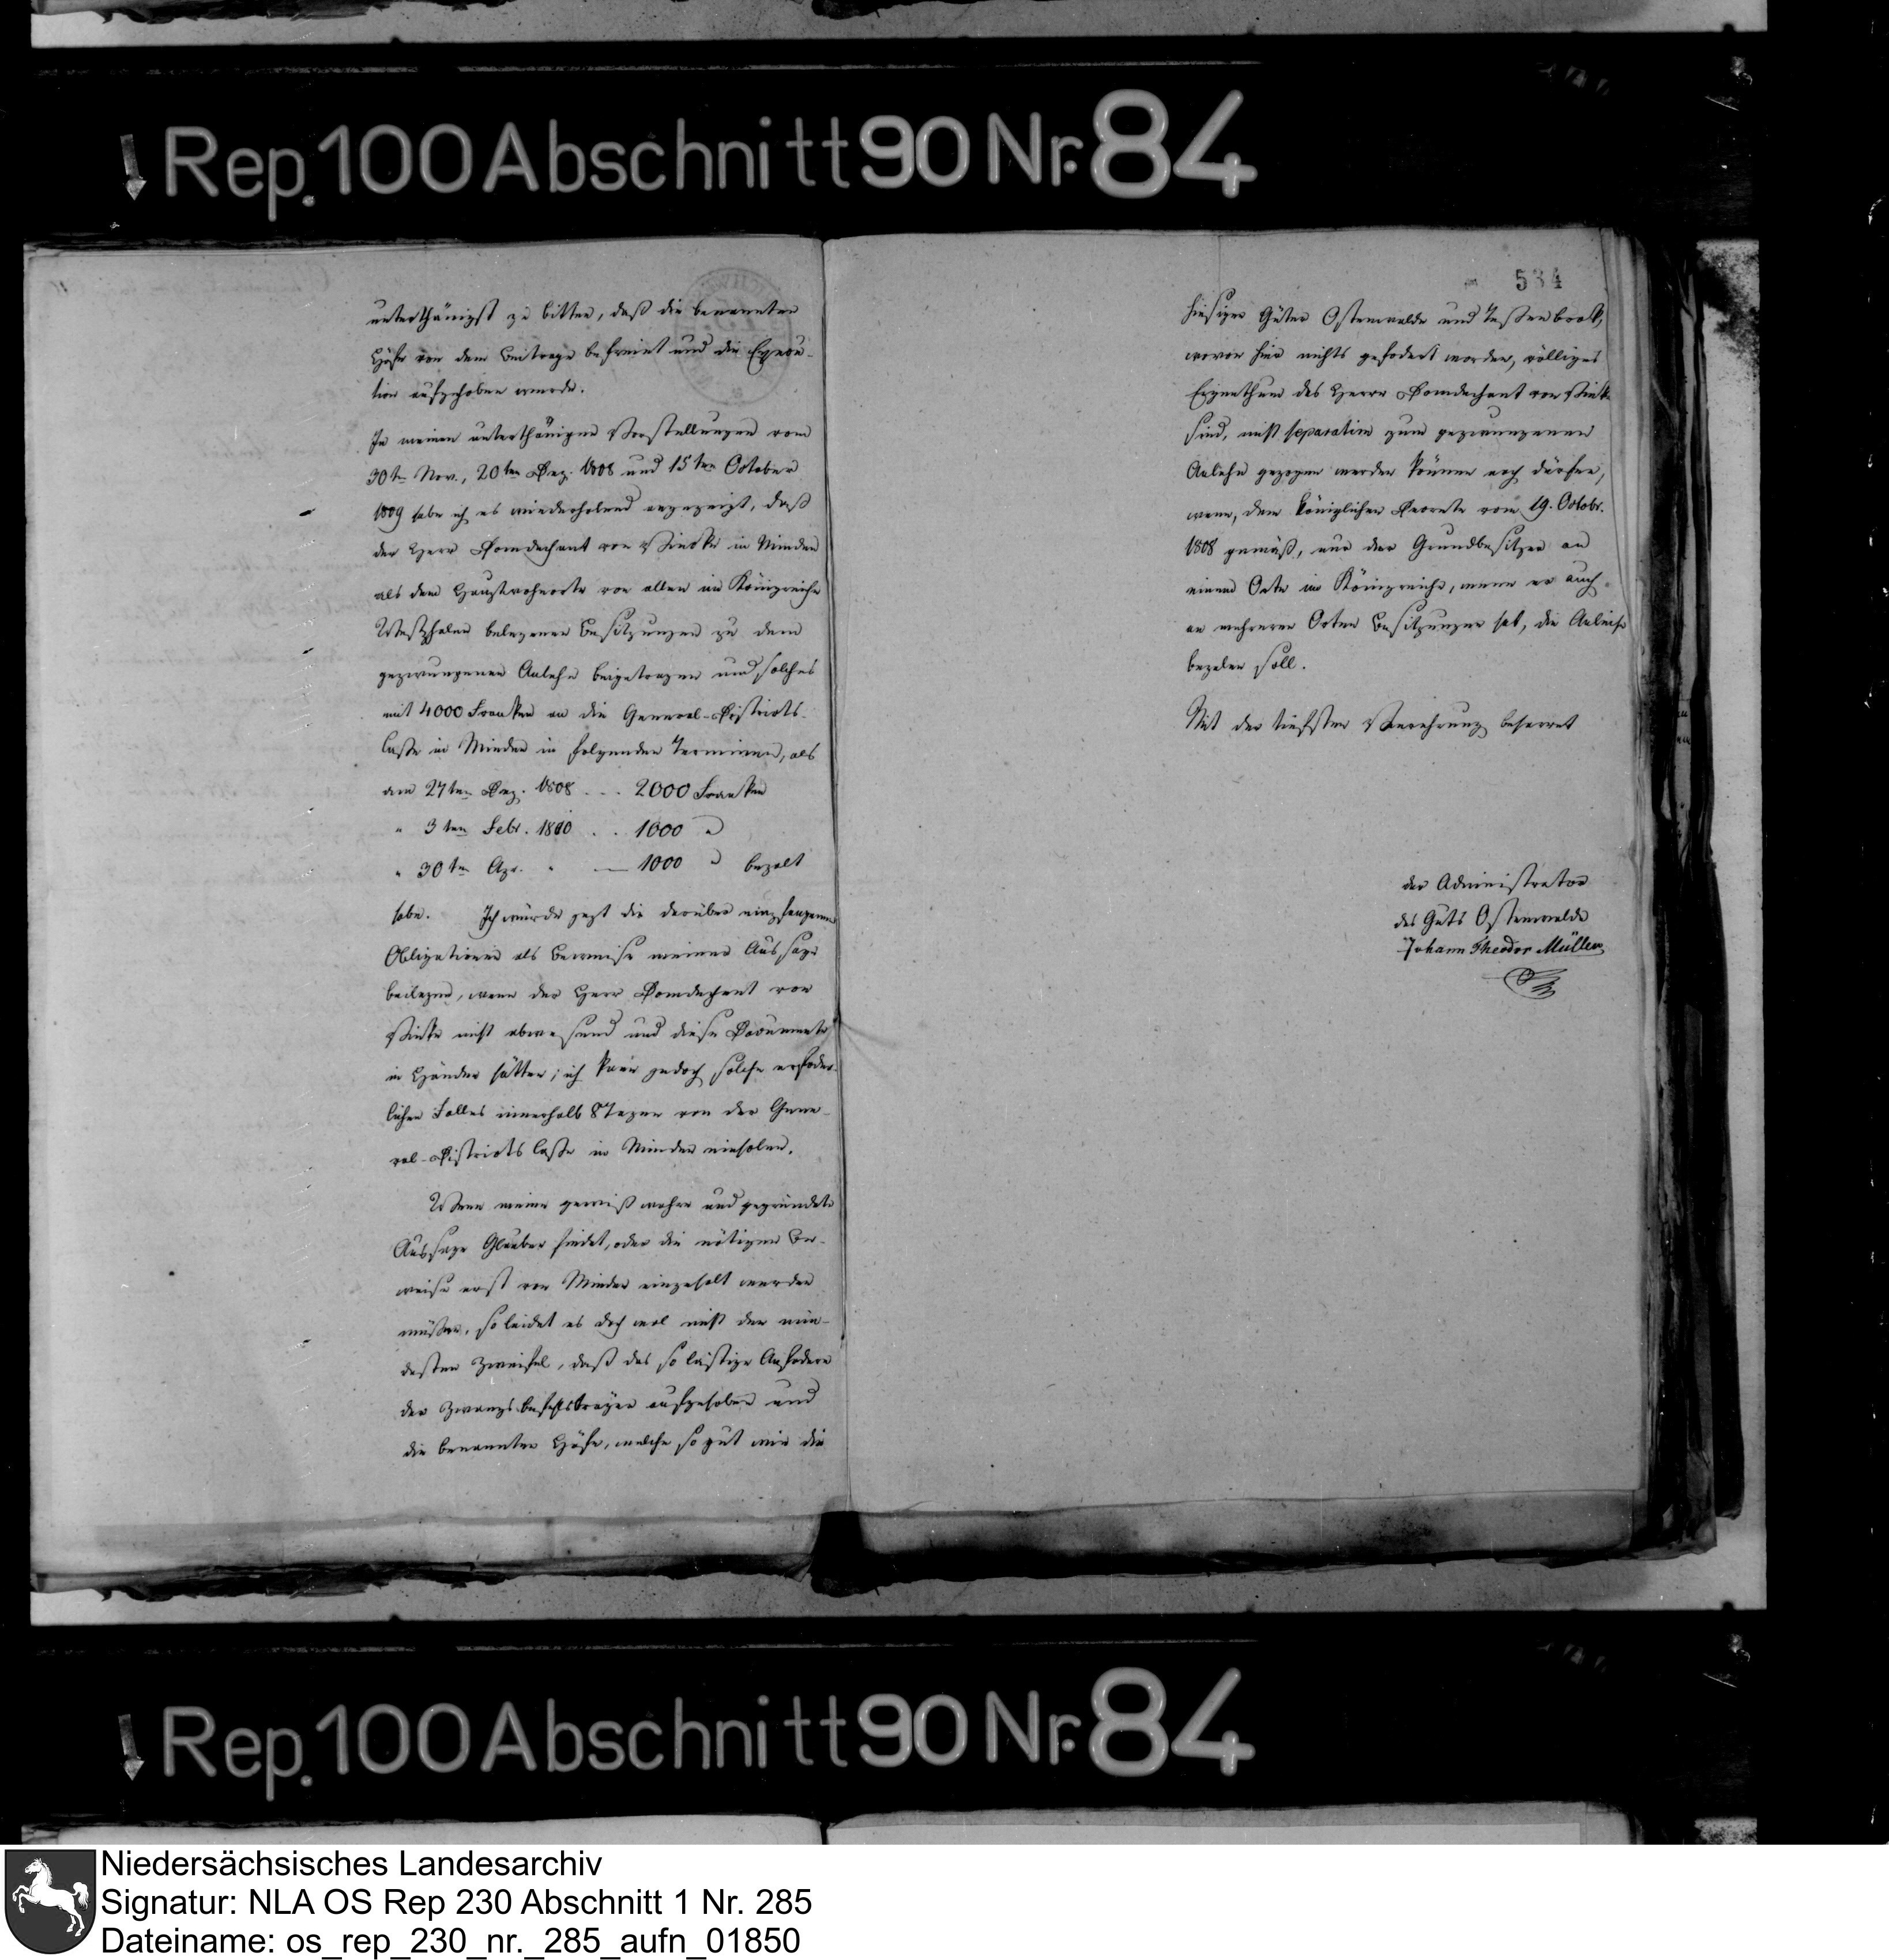 Rep. 100 Abschnitt 90 Nr. 84
unterthänigst zu bitten, daß die benannten
Höfe von dem Beitrage befreiet und die Execu-
tion aufgehoben werde.
In meinen unterthänigen Vorstellungen vom
30ten Nov., 20ten Dez. 1808 und 15ten October
1809 habe ich es wiederholend angezeigt, daß
der Herr Domdechant von Vincke in Minden
als dem Hauptwohnorte von allen im Königreiche
Westphalen belegenen Besitzungen zu dem
gezwungenen Anlehn beigetragen und solches
mit 4000 Franken an die General-Districts-
Casse in Minden in folgenden Terminen, als
am 27ten Dez. 1808 . . . 2000 Franken
" 3ten Febr. 1810 . . 1000 "
" 30ten Apr. " — 1000 " bezalt
habe. Ich würde jezt die darüber eingehangenen
Obligationen als Beweise meiner Aussage
beilegen, wenn der Herr Domdechant von
Vincke nicht abwesend und diese Documente
in Händen hätten; ich kann jedoch solche erfoder-
lichen Falles innerhalb 8 Tagen von der Gene-
ral-Districts Casse in Minden einholen.
Wenn meine gewiß wahre und gegründete
Aussage Glauben findet, oder die nötigen Be-
weise erst von Minden eingeholt werden
müssen, so leidet es doch wol nicht den min-
desten Zweifel, daß das so lästige Anfodern
der Zwangsbefehlsträger aufgehoben und
die benannten Höfe, welche so gut wie die
534
hiesigen Güter Ostenwalde und Tessenbrok,
wovon hier nichts gefodert worden, völliges
Eigenthum des Herrn Domdechant von Vincke
sind, nicht separatim zum gezwungenen
Anlehn gezogen werden können noch dürfen,
wenn, dem königlichen Decrete vom 19. Octobr.
1808 gemäß, nur der Grundbesitzer an
einem Orte im Königreiche, wenn er auch
an mehreren Orten Besitzungen hat, die Anleihe
bezalen soll.
Mit der tiefsten Verehrung beharret
der Administrator
des Guts Ostenwalde
Johann Theodor Müller
Rep. 100 Abschnitt 90 Nr. 84
Niedersächsisches Landesarchiv
Signatur: NLA OS Rep 230 Abschnitt 1 Nr. 285
Dateiname: os_rep_230_nr._285_aufn_01850